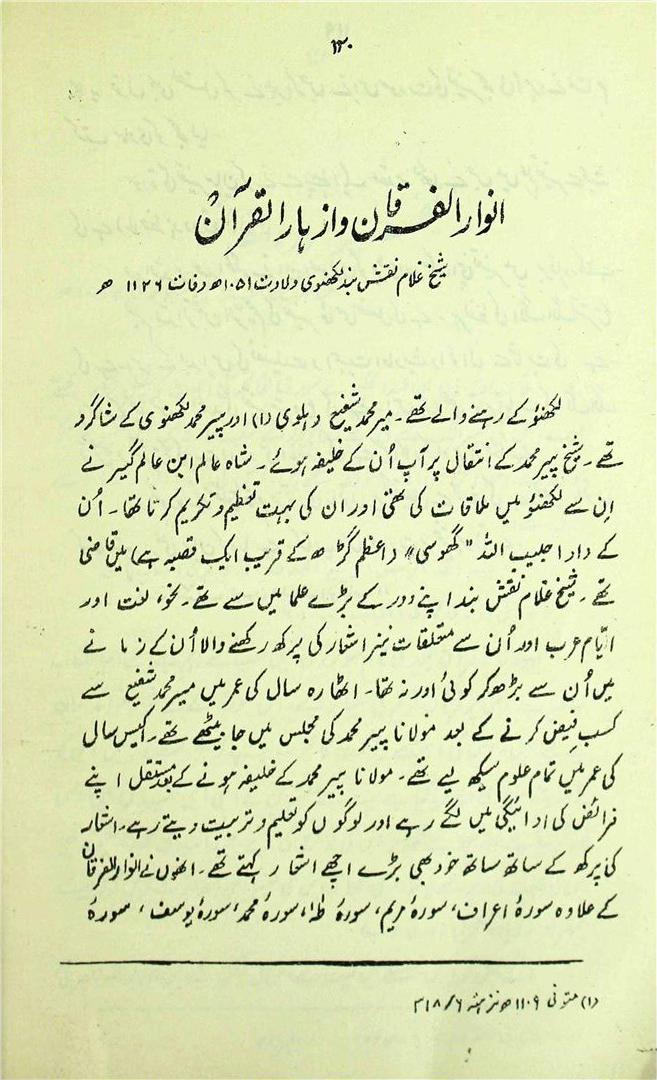 ۱۳۰
انوار الفرقان و ازہار القرآن
شیخ غلام نقشبند لکھنوی ولادت ۱۰۵۱ھ وفات ۱۱۲۶ ھ
لکھنؤ کے رہنے والے تھے۔ میر محمد شفیع دہلوی (۱) اور پیر محمد لکھنوی کے شاگرد
تھے۔ شیخ پیر محمد کے انتقال پر آپ اُن کے خلیفہ ہوئے۔ شاہ عالم ابن عالم گیر نے
اِن سے لکھنؤ میں ملاقات کی تھی اور ان کی بہت تعظیم و تکریم کرتا تھا۔ اُن
کے دادا حبیب اللہ "گھوسی" (اعظم گڑھ کے قریب ایک قصبہ ہے) میں قاضی
تھے۔ شیخ غلام نقش بند اپنے دور کے بڑے علما میں سے تھے۔ نحو، لغت اور
ایّام عرب اور اُن سے متعلقات نیز اشعار کی پرکھ رکھنے والا اُن کے زمانے
میں اُن سے بڑھ کر کوئی اور نہ تھا۔ اٹھارہ سال کی عمر میں میر محمد شفیع سے
کسب فیض کرنے کے بعد مولانا پیر محمد کی مجلس میں جا بیٹھے تھے۔ اکیس سال
کی عمر میں تمام علوم سیکھ لیے تھے۔ مولانا پیر محمد کے خلیفہ ہونے کے بعد مستقل اپنے
فرائض کی ادائیگی میں لگے رہے اور لوگوں کو تعلیم و تربیت دیتے رہے۔ اشعار
کی پرکھ کے ساتھ ساتھ خود بھی بڑے اچھے اشعار کہتے تھے۔ انھوں نے انوار الفرقان
کے علاوہ سورۂ اعراف، سورۂ مریم، سورۂ طٰہٰ، سورۂ محمد، سورۂ یوسف، سورۂ
(۱) متوفی ۱۱۰۹ھ نزہتہ ۶/ ۳۱۸